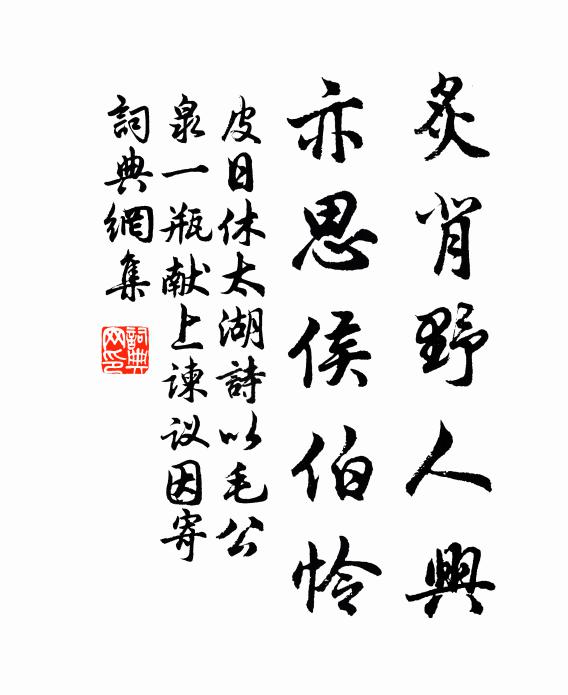 炙背野人興
亦思侯伯怜
皮日休太湖詩以毛公
泉一瓶献上諫议因寄
詞典網集
詞典
网印